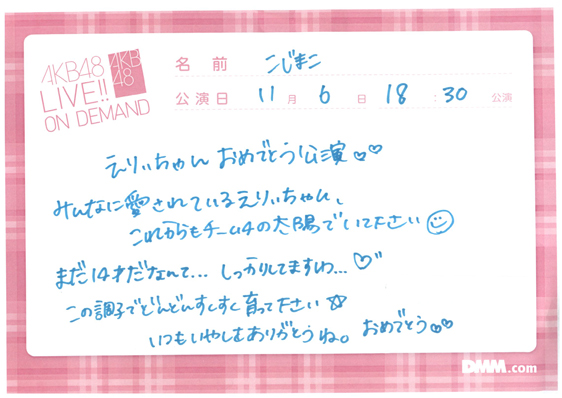 AKB48
LIVE!!
ON DEMAND
AKB
48
名前 こじまこ
公演日 11月6日 18:30 公演
えりぃちゃん おめでとう公演♡♡
みんなに愛されているえりぃちゃん、
これからもチーム4の太陽でいて下さい
まだ14才だなんて... しっかりしてますわ...♡
この調子でどんどんすくすく育って下さい☆
いつもいやしをありがとうね。 おめでとう♡♡
DMM.com